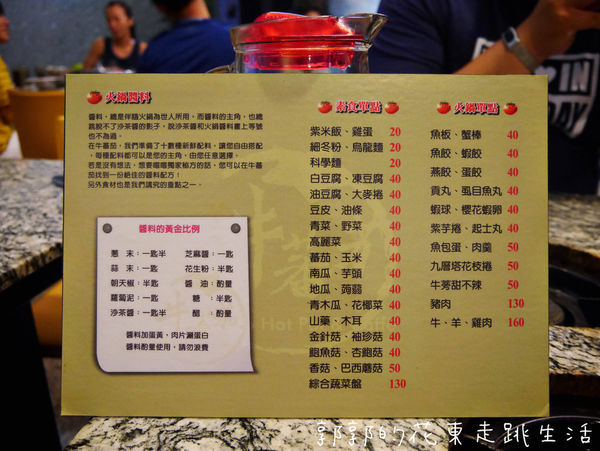 火鍋醬料
醬料，總是伴隨火鍋為世人所用。而醬料的主角，也總
跳脫不了沙茶醬的影子，說沙茶醬和火鍋醬料畫上等號
也不為過。
在牛蕃茄，我們準備了十數種新鮮配料，讓您自由搭配
，每種配料都可以是您的主角，由您任意選擇。
若是沒有想法，想要嚐嚐獨家祕方的話，您可以在牛蕃
茄找到一份絕佳的醬料配方！
另外食材也是我們講究的重點之一。
醬料的黃金比例
蔥　末：一匙半　芝麻醬：一匙
蒜　末：一匙　花生粉：半匙
朝天椒：半匙　醬　油：酌量
蘿蔔泥：一匙　糖：半匙
沙茶醬：一匙半　醋：酌量
醬料加蛋黃，肉片涮蛋白
醬料酌量使用，請勿浪費
素食單點
紫米飯、雞蛋 20
細冬粉、烏龍麵 20
科學麵 20
白豆腐、凍豆腐 40
油豆腐、大麥捲 40
豆皮、油條 40
青菜、野菜 40
高麗菜 40
蕃茄、玉米 40
南瓜、芋頭 40
地瓜、蒟蒻 40
青木瓜、花椰菜 40
山藥、木耳 40
金針菇、袖珍菇 40
鮑魚菇、杏鮑菇 40
香菇、巴西蘑菇 50
綜合蔬菜盤 130
火鍋單點
魚板、蟹棒 40
魚餃、蝦餃 40
燕餃、蛋餃 40
貢丸、虱目魚丸 40
蝦球、櫻花蝦卵 40
紫芋捲、起士丸 40
魚包蛋、肉羹 50
九層塔花枝捲 50
牛蒡甜不辣 50
豬肉 130
牛、羊、雞肉 160
郭郭的花東走跳生活